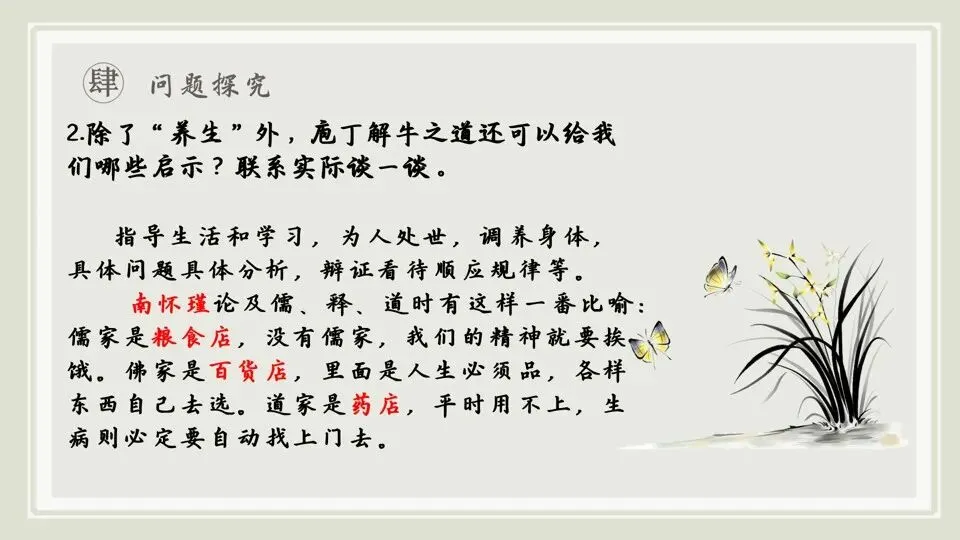 肆 问题探究
2.除了“养生”外，庖丁解牛之道还可以给我
们哪些启示？联系实际谈一谈。
指导生活和学习，为人处世，调养身体，
具体问题具体分析，辩证看待顺应规律等。
南怀瑾论及儒、释、道时有这样一番比喻：
儒家是粮食店，没有儒家，我们的精神就要挨
饿。佛家是百货店，里面是人生必须品，各样
东西自己去选。道家是药店，平时用不上，生
病则必定要自动找上门去。